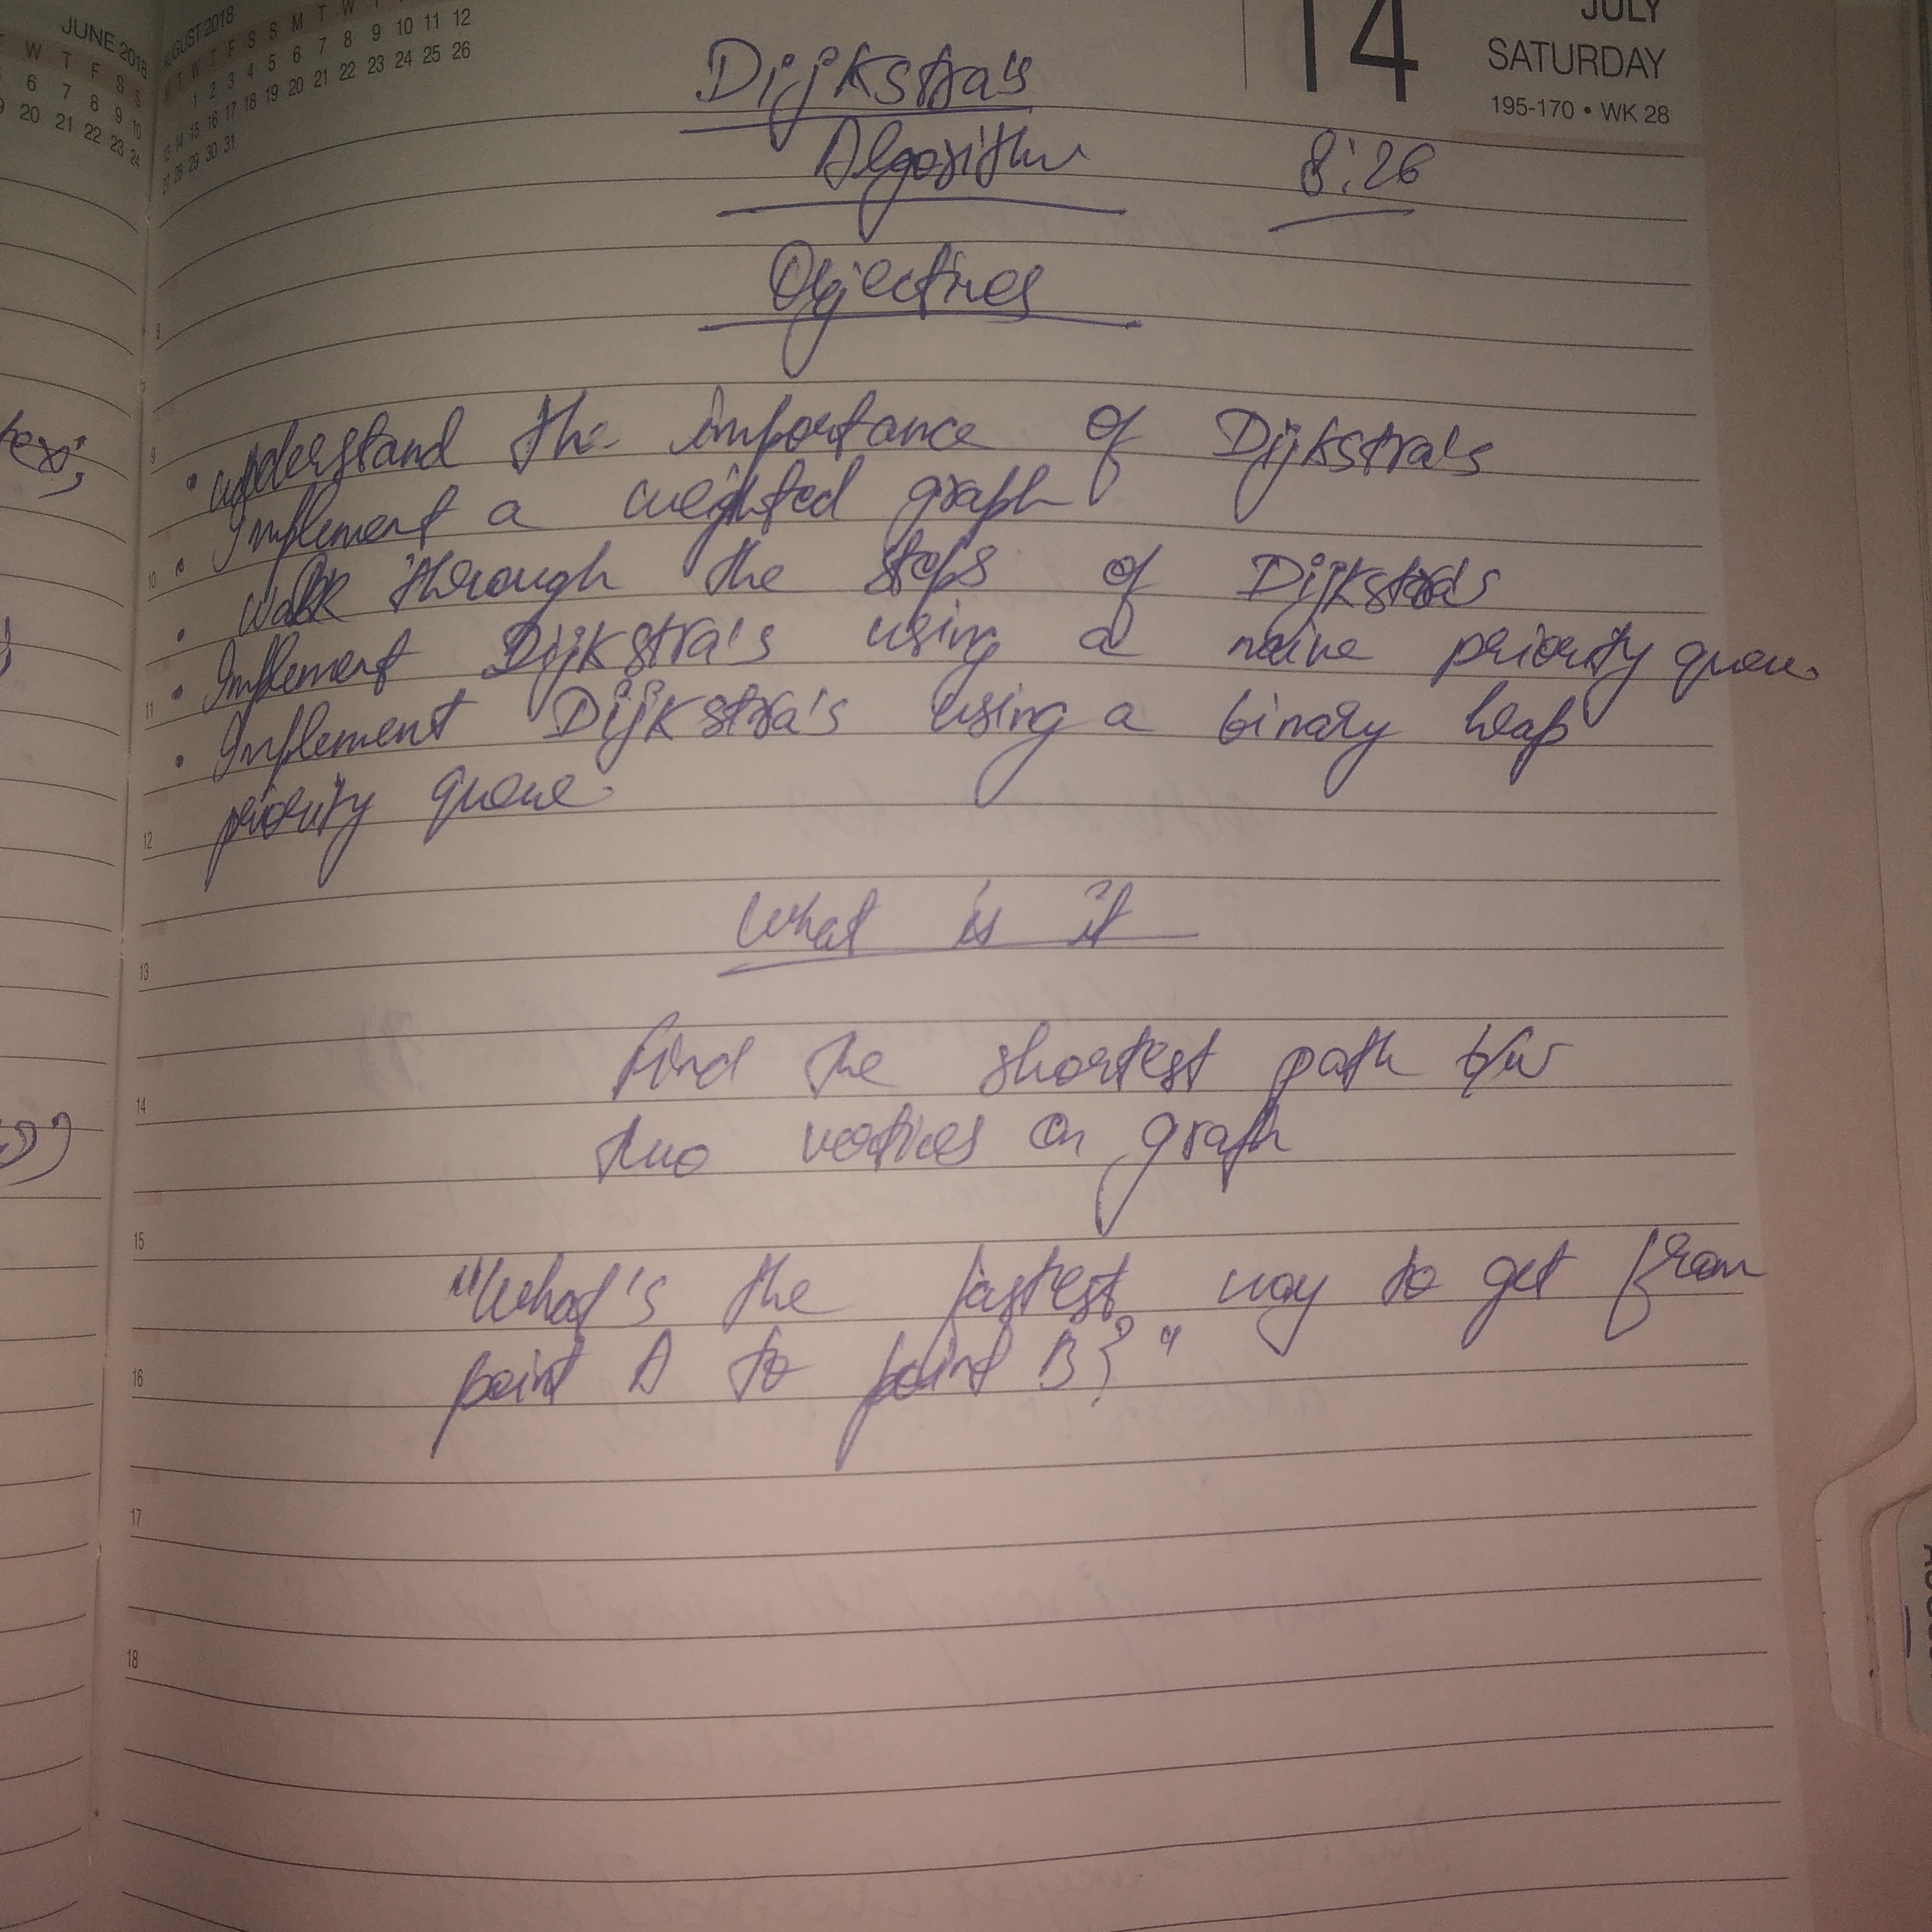 JUNE 2018
W T F S S
6 7 8 9 10
20 21 22 23 24
AUGUST 2018
M T W T F S S M T W T
1 2 3 4 5 6 7 8 9 10 11 12
13 14 15 16 17 18 19 20 21 22 23 24 25 26
27 28 29 30 31
14
JULY
SATURDAY
195-170 • WK 28
Dijkstra's
Algorithm
8:26
Objectives
• understand the importance of Dijkstra's
• Implement a weighted graph
• walk through the steps of Dijkstra's
• Implement Dijkstra's using a naive priority queue.
• Implement Dijkstra's using a binary heap
priority queue.
What is it
find the shortest path b/w
two vertices on graph
"What's the fastest way to get from
point A to point B?"
8
9
10
11
12
13
14
15
16
17
18